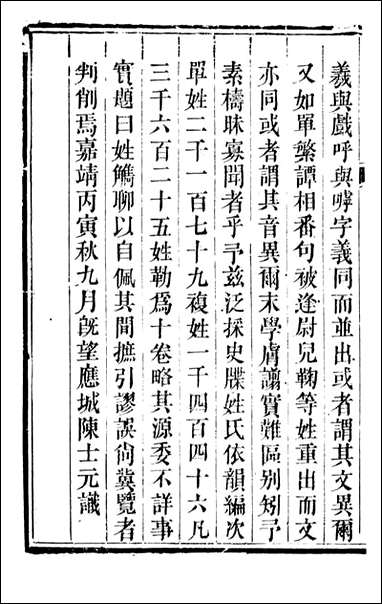 羲與戲呼與嘑字義同而並出或者謂其文異爾
又如單槃譚相番句被逢尉兒鞠等姓重出而文
亦同或者謂其音異爾末學膚謭實難區别矧予
素檮昧寡聞者乎予兹泛採史牒姓氏依韻編次
單姓二千一百七十九複姓一千四百四十六凡
三千六百二十五姓勒爲十卷略其源委不詳事
實題曰姓觿聊以自佩其間摭引謬誤尚冀覽者
判削焉嘉靖丙寅秋九月旣望應城陳士元識